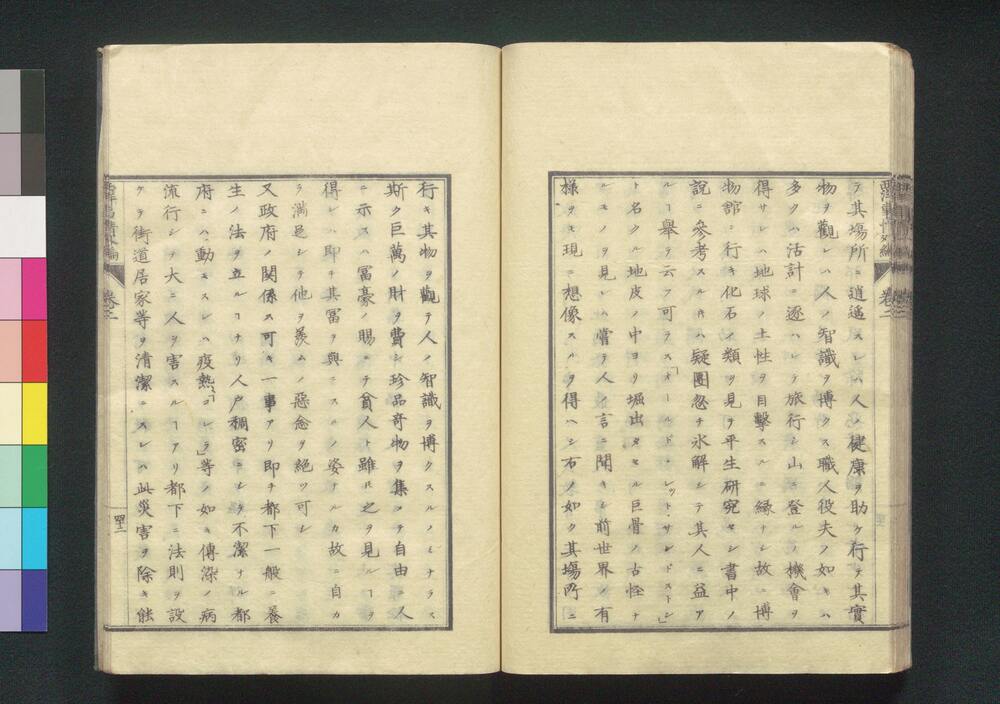 テ其場所ニ逍遙スレハ人ノ健康ヲ助ケ行テ其實
物ヲ觀レハ人ノ智識ヲ博クス職人役夫ノ如キハ
多クハ活計ニ逐ハレテ旅行シ山ニ登ルノ機會ヲ
得サレハ地球ノ土性ヲ目擊スルニ縁ナシ故ニ博
物館ニ行キ化石ノ類ヲ見テ平生研究セシ書中ノ
說ニ參考スルキハ疑團忽チ氷解シテ其人ニ益ア
ルヿ舉テ云フ可ラス「オールド・レット・サンドストン」
ト名クル地皮ノ中ヨリ堀出タセル巨骨ノ古怪ナ
ルモノヲ見レハ嘗テ人ノ言ニ聞キシ前世界ノ有
樣ヲモ現ニ想像スルヲ得ヘシ右ノ如ク其場所ニ
行キ其物ヲ觀テ人ノ智識ヲ博クスルノミナラス
斯ク巨萬ノ財ヲ費シ珍品奇物ヲ集メテ自由ニ人
ニ示スハ冨豪ノ賜ニテ貧人ト雖𪜈之ヲ見ルヿヲ
得レハ即チ其冨ヲ與ニスルノ姿ナルカ故ニ自カ
ラ滿足シテ他ヲ羨ムノ惡念ヲ絕ツ可シ
又政府ノ関係ス可キ一事アリ即チ都下一般ニ養
生ノ法ヲ立ルヿナリ人户稠密ニシテ不潔ナル都
府ニハ動モスレハ疫熱「コレラ」等ノ如キ傳染ノ病
流行シテ大ニ人ヲ害スルヿアリ都下ニ法則ヲ設
ケテ街道居家等ヲ清潔ニスレハ此災害ヲ除キ能
卷三
四十二